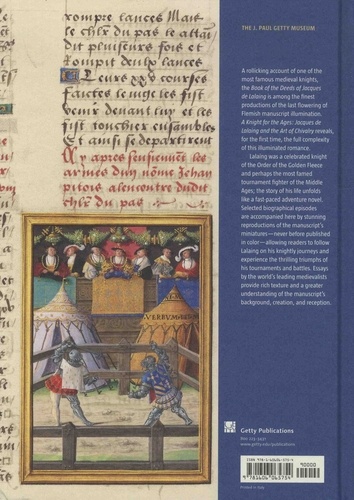 rompre lances Mait
le chlr du pas le attai
dit plusieurs fois et
rompit deulx lances
courses
faictes le iuge les fist
venir deuant luy et les
fist touchier ensambles
Et ainsi se departirent
Cy apres sensieuent les
armes dun nome Jehan
pitois alencontre dudit
chlr du pas
THE J. PAUL GETTY MUSEUM
A rollicking account of one of the
most famous medieval knights,
the Book of the Deeds of Jacques
de Lalaing is among the finest
productions of the last flowering of
Flemish manuscript illumination.
A Knight for the Ages: Jacques de
Lalaing and the Art of Chivalry reveals,
for the first time, the full complexity of
this illuminated romance.
Lalaing was a celebrated knight of
the Order of the Golden Fleece
and perhaps the most famed
tournament fighter of the Middle
Ages; the story of his life unfolds
like a fast-paced adventure novel.
Selected biographical episodes
are accompanied here by stunning
reproductions of the manuscript's
miniatures—never before published
in color—allowing readers to follow
Lalaing on his knightly journeys and
experience the thrilling triumphs of
his tournaments and battles. Essays
by the world's leading medievalists
provide rich texture and a greater
understanding of the manuscript's
background, creation, and reception.
Getty Publications
800 223 3431
www.getty.edu/publications
ISBN 978-1-60606-575-4
90000
9 781606 065754
Printed in Italy